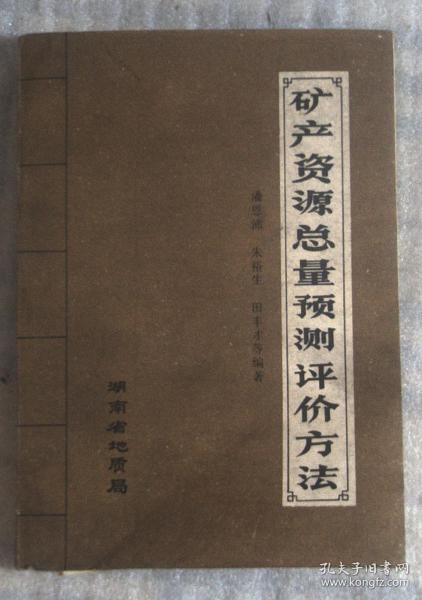 矿产资源总量预测评价方法
潘恩沛 朱裕生 田丰才等编著
湖南省地质局
孔夫子旧书网
www.kongfz.com